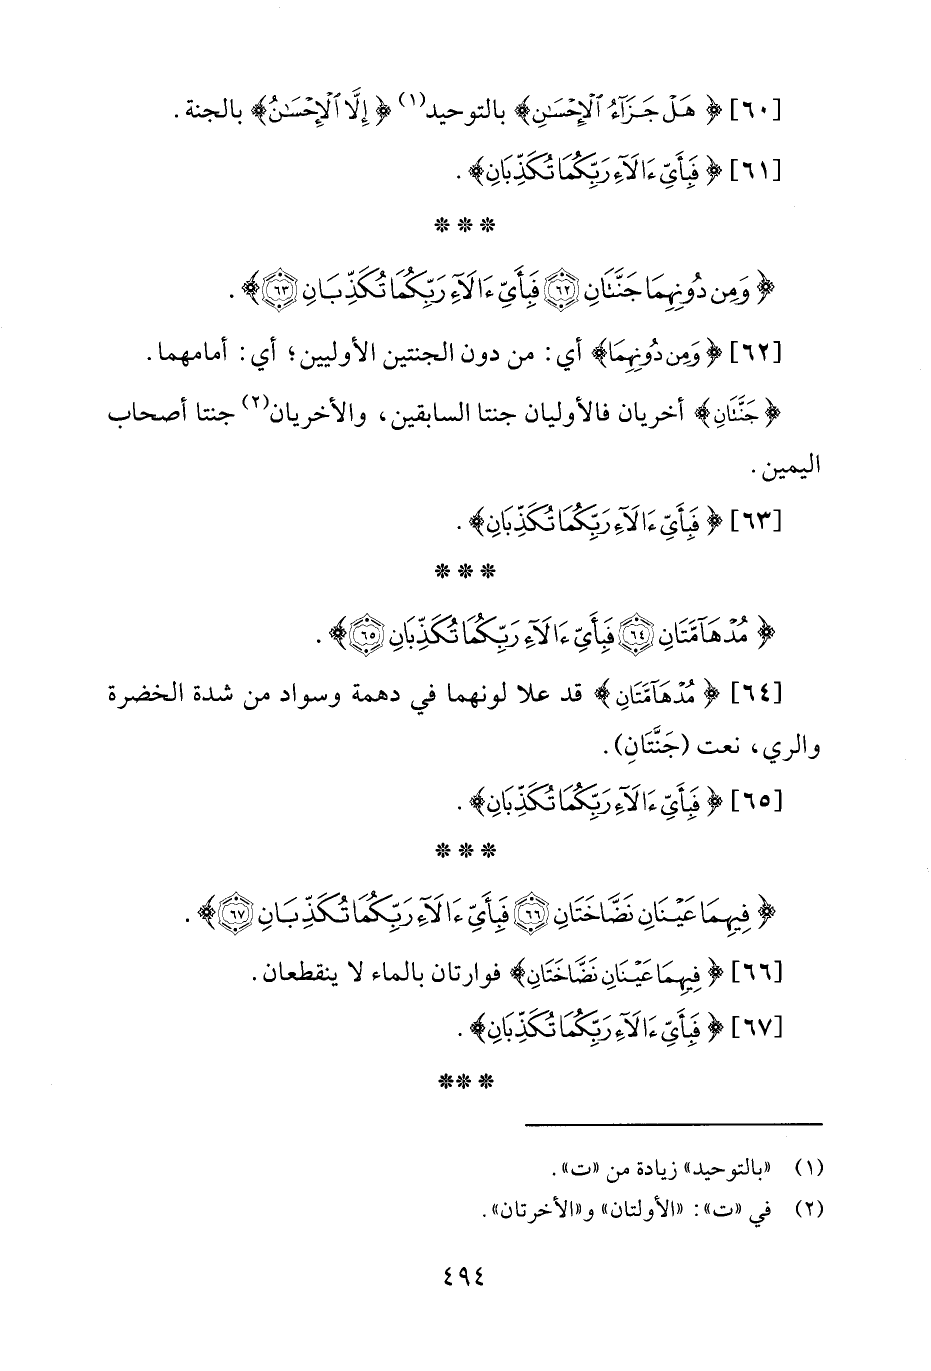 [٦٠] ﴿ هَلْ جَزَآءُ ٱلْإِحْسَـٰنِ﴾ بالتوحيد(١) ﴿ إِلَّا ٱلْإِحْسَـٰنُ﴾ بالجنة .
[٦١] ﴿ فَبِأَىِّ ءَالَآءِ رَبِّكُمَا تُكَذِّبَانِ﴾ .
* * *
﴿ وَمِن دُونِهِمَا جَنَّتَانِ ٦٢ فَبِأَىِّ ءَالَآءِ رَبِّكُمَا تُكَذِّبَانِ ٦٣﴾ .
[٦٢] ﴿ وَمِن دُونِهِمَا﴾ أي: من دون الجنتين الأوليين؛ أي: أمامهما .
﴿ جَنَّتَانِ﴾ أخريان فالأوليان جنتا السابقين، والأخريان(٢) جنتا أصحاب
اليمين .
[٦٣] ﴿ فَبِأَىِّ ءَالَآءِ رَبِّكُمَا تُكَذِّبَانِ﴾ .
* * *
﴿ مُدْهَآمَّتَانِ ٦٤ فَبِأَىِّ ءَالَآءِ رَبِّكُمَا تُكَذِّبَانِ ٦٥﴾ .
[٦٤] ﴿ مُدْهَآمَّتَانِ﴾ قد علا لونهما في دهمة وسواد من شدة الخضرة
والري، نعت (جَنَّتَانِ).
[٦٥] ﴿ فَبِأَىِّ ءَالَآءِ رَبِّكُمَا تُكَذِّبَانِ﴾ .
* * *
﴿ فِيهِمَا عَيْنَانِ نَضَّاخَتَانِ ٦٦ فَبِأَىِّ ءَالَآءِ رَبِّكُمَا تُكَذِّبَانِ ٦٧﴾ .
[٦٦] ﴿ فِيهِمَا عَيْنَانِ نَضَّاخَتَانِ﴾ فوارتان بالماء لا ينقطعان .
[٦٧] ﴿ فَبِأَىِّ ءَالَآءِ رَبِّكُمَا تُكَذِّبَانِ﴾ .
* * *
(١) «بالتوحيد» زيادة من «ت» .
(٢) في «ت»: «الأولتان» و«الأخرتان» .
٤٩٤